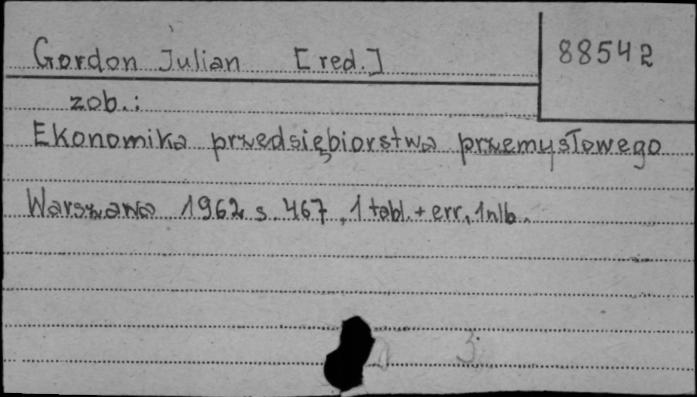 Gordon Julian [red.]
88542
zob.:
Ekonomika przedsiębiorstwa przemysłowego
Warszawa 1962 s. 467, 1 tabl. + err, 1 nlb.